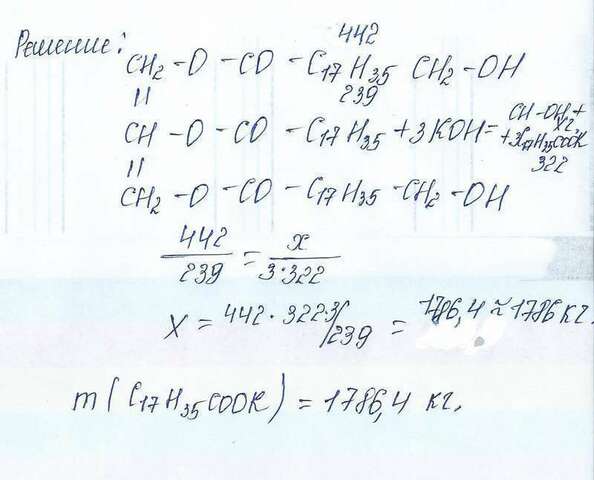 Решение:
442
CH₂ - O - CO - C₁₇H₃₅ CH₂ - OH
239
||
CH - O - CO - C₁₇H₃₅ + 3KOH = CH - OH +
xг.
+ 3C₁₇H₃₅COOK
322
||
CH₂ - O - CO - C₁₇H₃₅ - CH₂ - OH
442/239 = x/3·322
X = 442 · 322·3/239 = 1786,4 ≈ 1786 кг.
m (C₁₇H₃₅COOK) = 1786,4 кг.